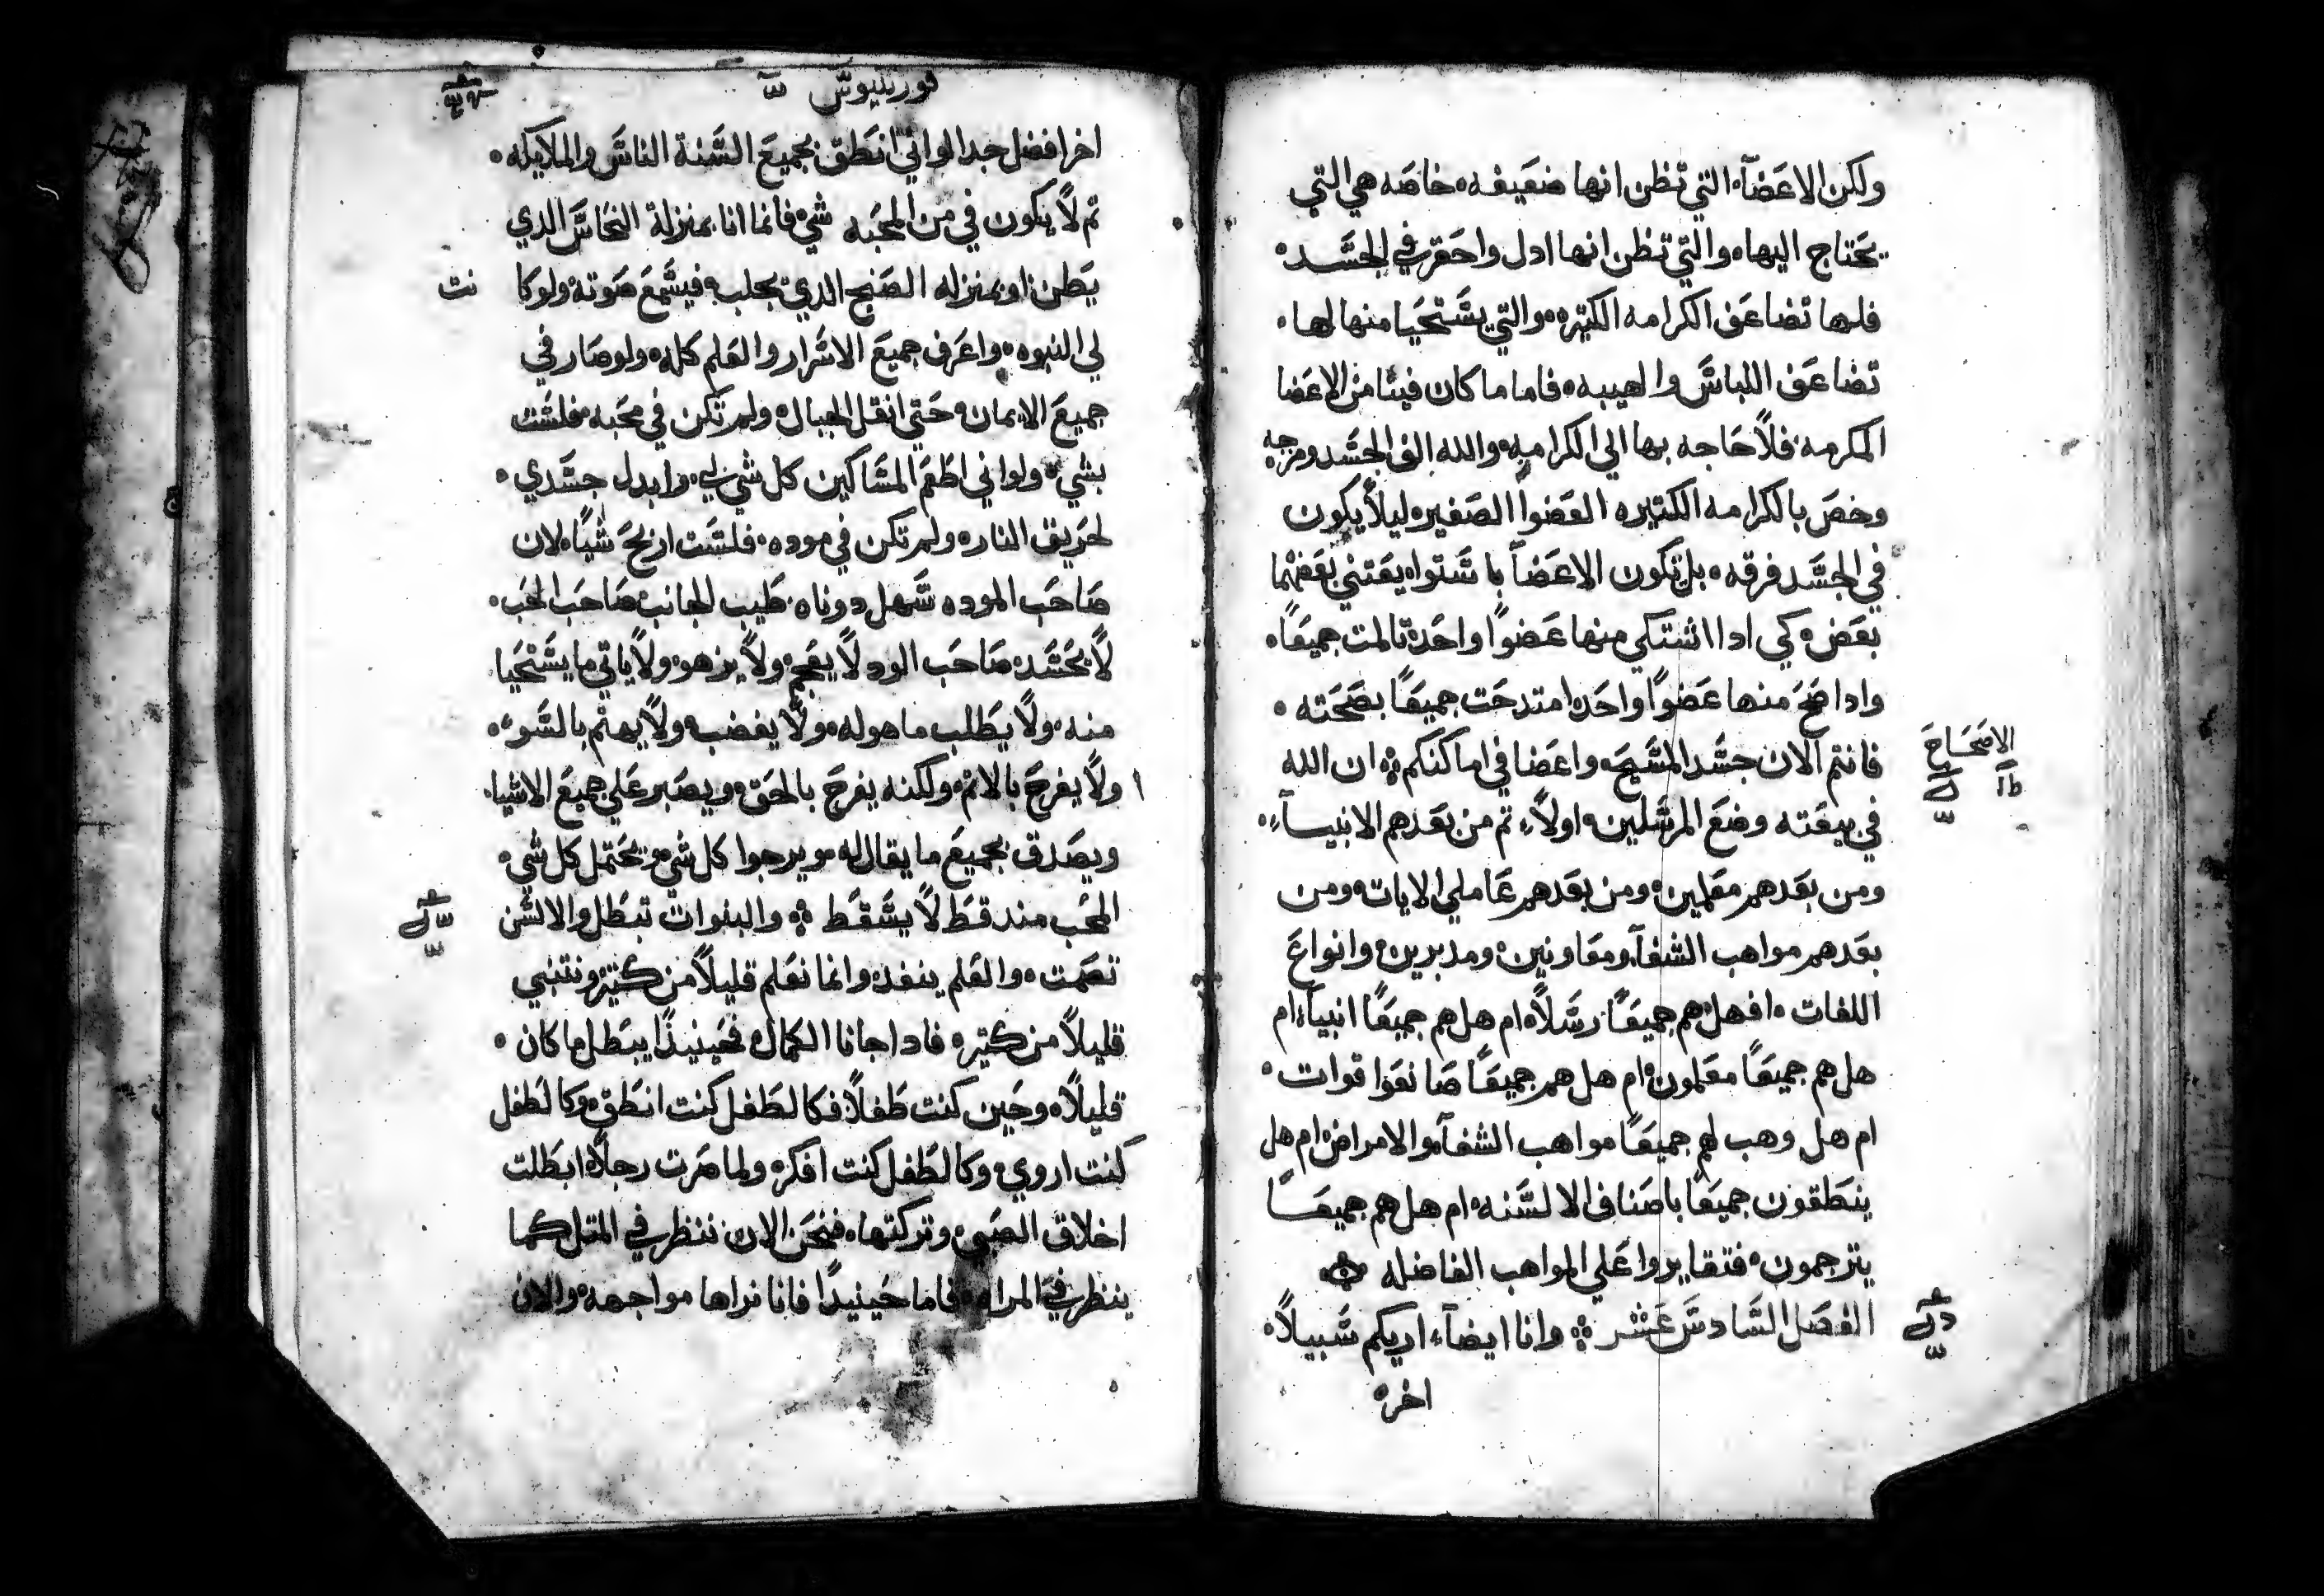 ولكن الاعضآء التي تظن انها ضعيفه خاصه هي التي
يحتاج اليها والتي تظن انها ادل واحقر في الجسد
فلها تضاعف الكرامه الكتيره والتي يستحيا منها لها
تضاعف اللباس والهيبه فاما ما كان فينا من الاعضا
المكرمه فلا حاجه بها الي الكرامه والله الف الجسد ومزجه
وخص بالكرامه الكتيره العضوا الصغيره ليلا يكون
في الجسد فرقه بل تكون الاعضآ باستوا يعتني بعضها
بعض كي ادا اشتكي منها عضوا واحد تالمت جميعا
وادا صح منها عضوا واحد امتدحت جميعا بصحته
فانتم الان جسد المسيح واعضا في اماكنكم ان الله
الاصحاح
في بيعته وضع المرسلين اولاً تم من بعدهم الانبيآء
ومن بعدهم معلمين ومن بعدهم عاملي الايات ومن
بعدهم مواهب الشفآ ومعاونين ومدبرين وانواع
اللغات افهل هم جميعاً رسلاً ام هل هم جميعاً انبياء ام
هل هم جميعاً معلمون ام هل هم جميعاً صانعوا قوات
ام هل وهب لهم جميعاً مواهب الشفآ والامراض ام هل
ينطقون جميعاً باصناف الالسنه ام هل هم جميعاً
يترجمون فتغايروا علي المواهب الفاضله
الفصل السادس عشر وانا ايضآء اريكم سبيلاً
اخر
قورنتيوس
اخر افضل جدا لو اني انطق بجميع السنة الناس والملايكه
تم لا يكون في من المحبه شي فانما انا بمنزلة النحاس الدي
يطن او بمنزله الصنج الدي يجلب فيسمع صوته ولو كا
نت
لي النبوه واعرف جميع الاسرار والعلم كله ولو صار في
جميع الايمان حتي انقل الجبال ولم تكن في محبه فلست
بشي ولو اني اطعم المساكين كل شي لي وابدل جسدي
لحريق النار ولم تكن في موده فلست اربح شياً لان
صاحب الموده سهل دوناه طيب الجانب صاحب الحب
لا يحسد صاحب الود لا يعجم ولا يزهو ولا ياتي ما يستحيا
منه ولا يطلب ما هوله ولا يغضب ولا يهتم بالسوء
ولا يفرح بالاتم ولكنه يفرح بالحق ويصبر علي جميع الاشيا
ويصدق بجميع ما يقال له ويرجوا كل شي ويحتمل كل شي
المحب مند قط لا يسقط والبنوات تبطل والالسن
تصمت والعلم ينفد وانما نعلم قليلاً من كتير ونتنبي
قليلاً من كتير فادا جانا الكمال فحينيذاً يبطل ما كان
قليلاً وحين كنت طفلاً فكالطفل كنت انطق وكالطفل
كنت اروي وكالطفل كنت افكر ولما صرت رجلاً ابطلت
اخلاق الصبي وتركتها فنحن الان ننظر في المتل كما
ينظر في المراه فاما حينيداً فانا نراها مواجهه والان